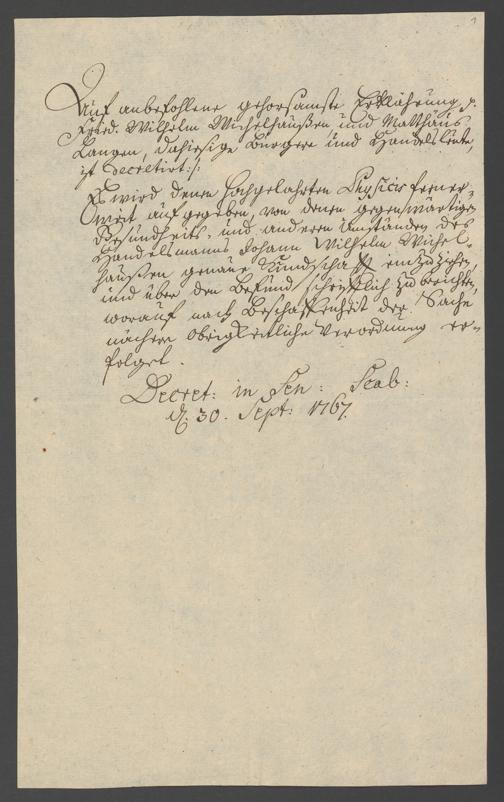 1
Auf anbefohlene gehorsamste Erklährung H.
Fried. Wilhelm Michelhaußen und Matthäus
Langen, dahiesige Burgere und Handelsleute,
ist decretirt:/:
Es wird denen Hochgelahrten Physicis ferner-
weit aufgegeben, von denen gegenwärtigen
Gesundheits- und anderen Umständen des
Handelsmanns Johann Wilhelm Michel-
haußen genaue Kundschafft einzuziehen,
und über den Befund schriftlich zu berichten,
worauf nach Beschaffenheit der Sache
nähere Obrigkeitliche Verordnung er-
folget.
Decret: in Sen: Scab:
d. 30. Sept: 1767.